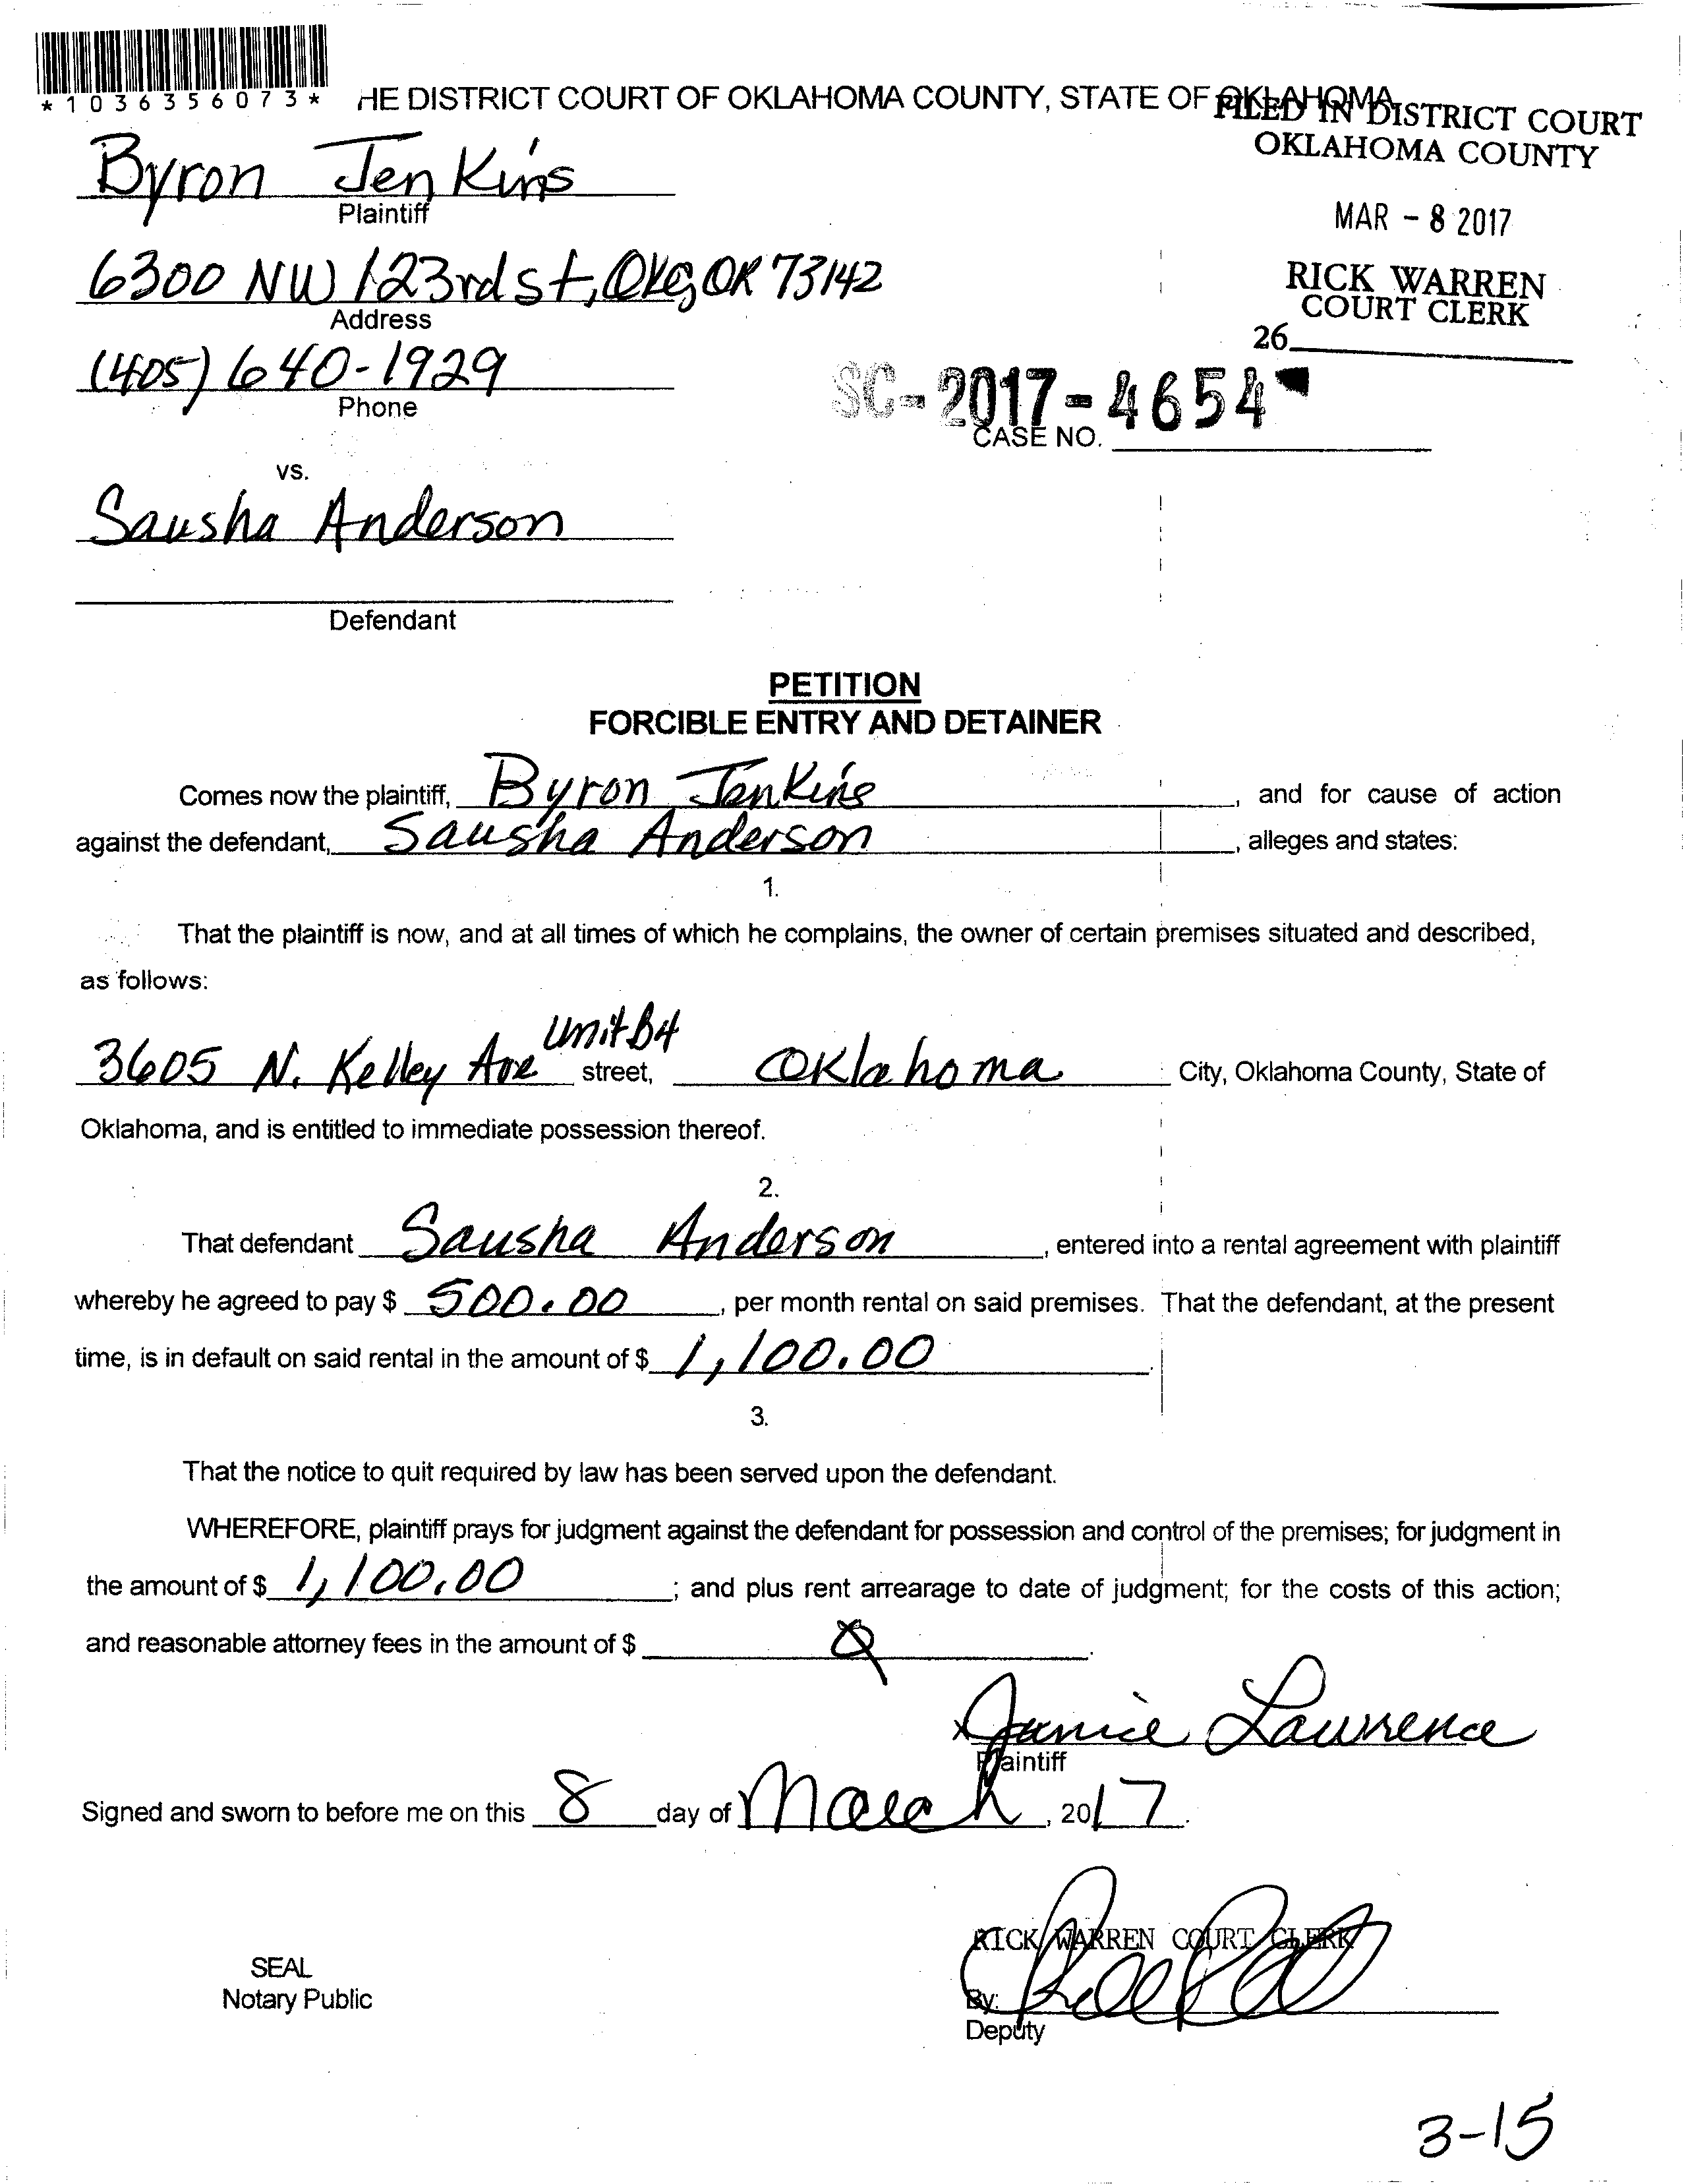 *1036356073*
HE DISTRICT COURT OF OKLAHOMA COUNTY, STATE OF OKLAHOMA
FILED IN DISTRICT COURT
OKLAHOMA COUNTY
Byron Jenkins
Plaintiff
MAR - 8 2017
6300 NW 123rd st, Okc, OK 73142
Address
RICK WARREN
COURT CLERK
26
(405) 640-1929
Phone
SC-2017-4654
CASE NO.
vs.
Sausha Anderson
Defendant
PETITION
FORCIBLE ENTRY AND DETAINER
Comes now the plaintiff, Byron Jenkins, and for cause of action
against the defendant, Sausha Anderson, alleges and states:
1.
That the plaintiff is now, and at all times of which he complains, the owner of certain premises situated and described,
as follows:
3605 N. Kelley Ave Unit B4 street, Oklahoma City, Oklahoma County, State of
Oklahoma, and is entitled to immediate possession thereof.
2.
That defendant Sausha Anderson, entered into a rental agreement with plaintiff
whereby he agreed to pay $ 500.00, per month rental on said premises. That the defendant, at the present
time, is in default on said rental in the amount of $ 1,100.00.
3.
That the notice to quit required by law has been served upon the defendant.
WHEREFORE, plaintiff prays for judgment against the defendant for possession and control of the premises; for judgment in
the amount of $ 1,100.00; and plus rent arrearage to date of judgment; for the costs of this action;
and reasonable attorney fees in the amount of $
x Janice Lawrence
Plaintiff
Signed and sworn to before me on this 8 day of March, 2017.
RICK WARREN COURT CLERK
SEAL
Notary Public
By:
Deputy
3-15